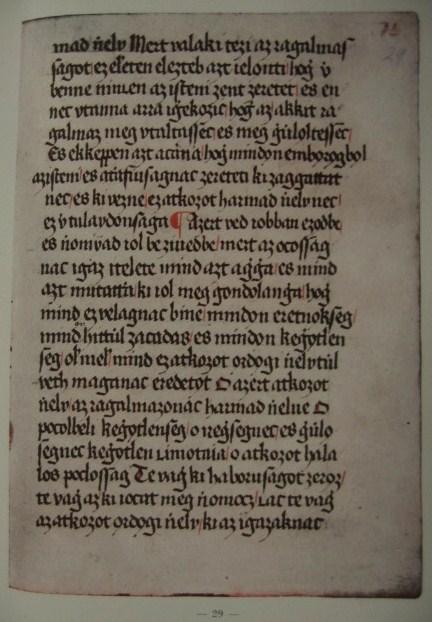 mad ńelv Mert valaki tezi az ragalmas
sagot ez eleten elezteb azt ielonti hoǵ v
benne nincen az isteni zent zeretet es en
nec vtanna arra iǵekozic hoǵ az akkit ra
galmaz meg vtaltassec es meg ǵúloltessec
Es ekkeppen azt acańa hoǵ mindon emborogbol
az isten es atafiusagnac zereteti ki zaggattat
nec es ki vezne ez atkozot harmad ńelvnec
ez v tulaydonsaga ¶ Azert ved iobban ezodbe
es ńomyad iol be zivedbe mert az ocossag
nac igaz itelete mind azt aǵǵa es mind
azt mutatta ki iol meg gondolanǵa hoǵ
mind ez velagnac bine mindon eretnokseg
mind hittúl zacadas es mindon keǵotlen
seg mind ez atkozot ordogi ńelvtúl
veth maganac eredetot O azert atkozot
ńelv az ragalmazonac harmad ńelve O
pocolbeli keǵotlenseg o iregsegnec es ǵúlo
segnec keǵotlen o atkozot hala
los poclossag Te vaǵ ki haborusagot zeroz
te vaǵ az ki iocat meg ńomoz Iac te vaǵ
az atkozot ordogi ńelv ki az igazaknac
— 29 —